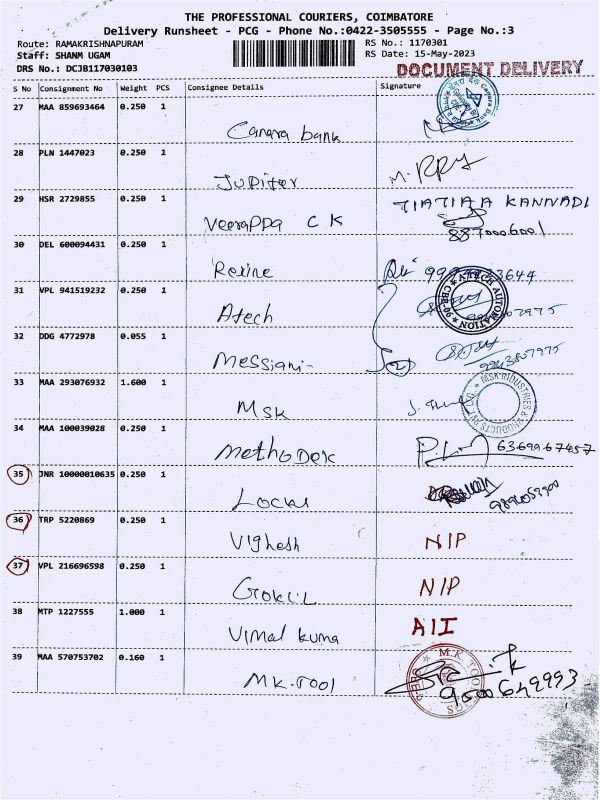 THE PROFESSIONAL COURIERS, COIMBATORE
Delivery Runsheet - PCG - Phone No.:0422-3505555 - Page No.:3
Route: RAMAKRISHNAPURAM RS No.: 1170301
Staff: SHANM UGAM RS Date: 15-May-2023
DRS No.: DCJB117030103 DOCUMENT DELIVERY
S No Consignment No Weight PCS Consignee Details Signature
27 MAA 859693464 0.250 1
Canara bank
28 PLN 1447023 0.250 1
Jupiter M. RRY
29 HSR 2729855 0.250 1
Veerappa C K 8870006001
30 DEL 600094431 0.250 1
Rexine
31 VPL 941519232 0.250 1
Atech ATECH AUTOMATION CBE-90
32 DDG 4772978 0.055 1
Messiani- (2)
33 MAA 293076932 1.600 1
MSK MSK INDUSTRIES & PRODUCTS PVT LTD
34 MAA 100039028 0.250 1
Methodex
35 JNR 10000010635 0.250 1
36 TRP 5220869 0.250 1
Vighesh NIP
37 VPL 216696598 0.250 1
NIP
38 MTP 1227555 1.000 1
Vimal kuma AII
39 MAA 570753702 0.160 1
MK-Tool M.K TOOLINGS 9500649993